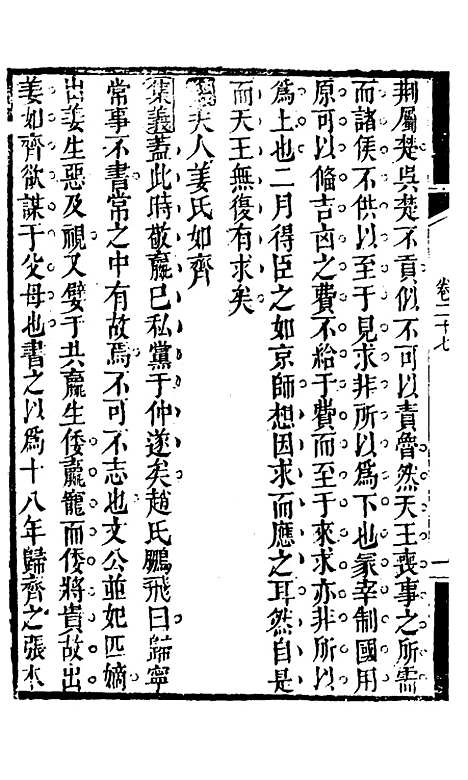 荆屬楚吳楚不貢似不可以責魯然天王喪事之所需
而諸侯不供以至于見求非所以爲下也冢宰制國用
原可以偹吉凶之費不給于費而至于來求亦非所以
爲上也二月得臣之如京師想因求而應之耳然自是
而天王無復有求矣
夫人姜氏如齊
集義蓋此時敬嬴已私黨于仲遂矣趙氏鵬飛曰歸寧
常事不書常之中有故焉不可不志也文公並妃匹嫡
出姜生惡及視又嬖于共嬴生倭嬴寵而倭將貴故出
姜如齊欲謀于父母也書之以爲十八年歸齊之張本
卷二十七